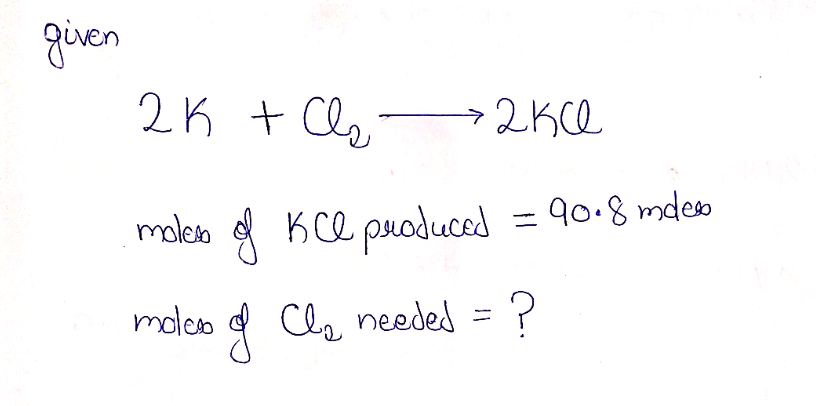 given
2K + Cl₂ ⟶ 2KCl
moles of KCl produced = 90.8 moles
moles of Cl₂ needed = ?